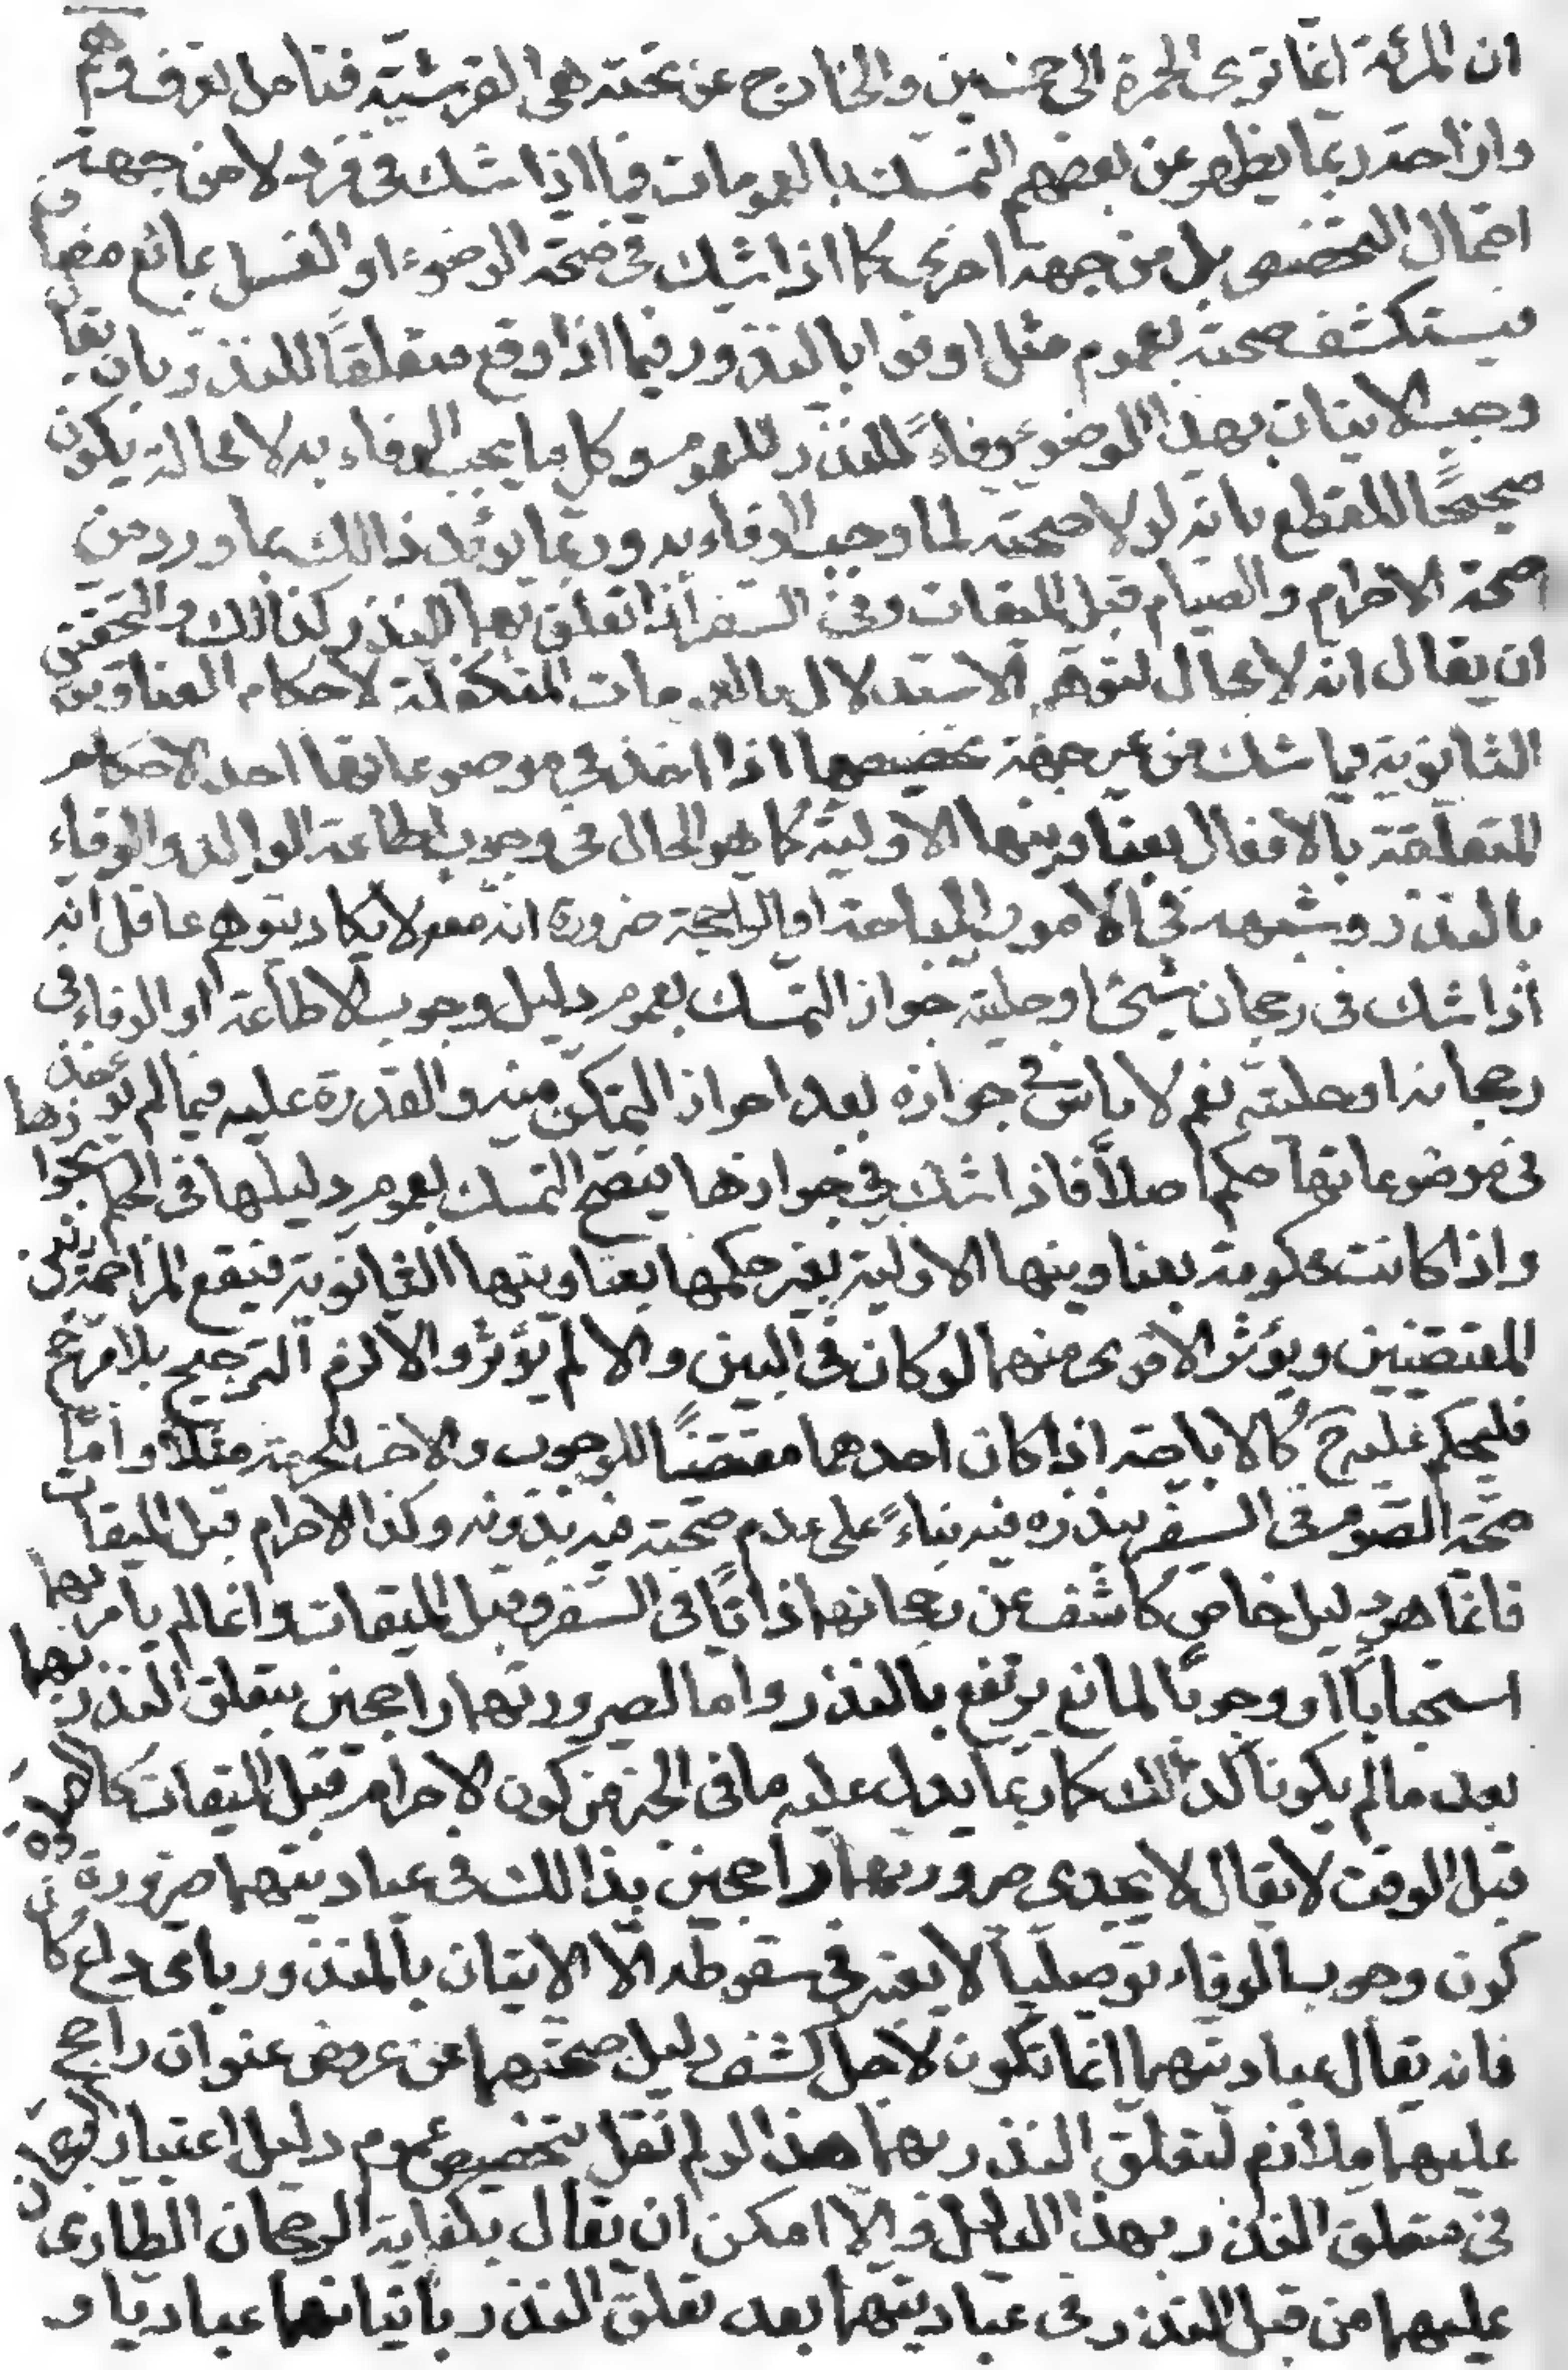 ان المرئة انما ترى الحمرة الى خمسين والخارج عن تحته هى القرشيّة فتأمل تعرف وهم
وازاحة ربما يظهر عن بعضهم التمسك بالعمومات فيما اذا شك فى فرد لا من جهة
احتمال التخصيص بل من جهة اخرى كما اذا شك فى صحة الوضوء او الغسل بمائع مضاف
فيستكشف صحته بعموم مثل اوفوا بالنذور فيما اذا وقع متعلقاً للنذر بان يقال
وجب الاتيان بهذا الوضوء وفاءً للنذر للعموم وكل ما يجب الوفاء به لا محالة يكون
صحيحًا للقطع بانه لولا صحته لما وجب الوفاء به وربما يؤيد ذالك بما ورد من
صحة الاحرام والصيام قبل الميقات وفى السفر اذا تعلق بهما النذر كذالك والتحقيق
ان يقال انه لا مجال لتوهم الاستدلال بالعمومات المتكفلة لاحكام العناوين
الثانوية فيما شك من غير جهة تخصيصها اذا اخذ فى موضوعاتها احد الاحكام
المتعلقة بالافعال بعناوينها الاولية كما هو الحال فى وجوب اطاعة الوالد والوفاء
بالنذر وشبهه فى الامور المباحة او الراجحة ضرورة انه معه لا يكاد يتوهم عاقل انه
اذا شك فى رجحان شىء او حليته جواز التمسك بعموم دليل وجوب الاطاعة او الوفاء فى
رجحانه او حليته نعم لا باس فى جوازه بعد احراز التمكن منه والقدرة عليه فيما لم يؤخذ
فى موضوعاتها حكم اصلاً فاذا شك فى جوازها فيصح التمسك بعموم دليلها فى الحكم بجوازها
واذا كانت محكومة بعناوينها الاولية بغير حكمها بعناوينها الثانوية فتقع المزاحمة بين
المقتضيين ويؤثر الاقوى منهما لو كان فى البين والا لم يؤثر والا لزم الترجيح بلا مرجح
فليحكم عليه ح كالاباحة اذا كان احدهما مقتضيًا للوجوب والاخر للحرمة مثلاً واما
صحة الصوم فى السفر بنذره فيه بناءً على عدم صحته فيه بدونه وكذا الاحرام قبل الميقات
فانما هو دليل خاص كاشف عن رجحانهما ذاتًا فى السفر وقبل الميقات وانما لم يأمر بهما
استحبابًا او وجوبًا لمانع يرتفع بالنذر واما لصيرورتهما راجحين بتعلق النذر بهما
بعد ما لم يكونا كذالك كما ربما يدل عليه ما فى الخبر من كون الاحرام قبل الميقات كالصلوة
قبل الوقت لا يقال لا يجدى صيرورتهما راجحين بذالك فى عباديتهما ضرورة
كون وجوب الوفاء توصليًا لا يعتبر فى سقوطه الا الاتيان بالمنذور باى داع كان
فانه يقال عباديتهما انما تكون لاجل كشف دليل صحتهما عن عروض عنوان راجح
عليهما ملازم لتعلق النذر بهما هذا لو لم نقل بتخصيص عموم دليل اعتبار الرجحان
فى متعلق النذر بهذا الدليل والا امكن ان يقال بكفاية الرجحان الطارى
عليهما من قبل النذر فى عباديتهما بعد تعلق النذر باتيانهما عباديا و